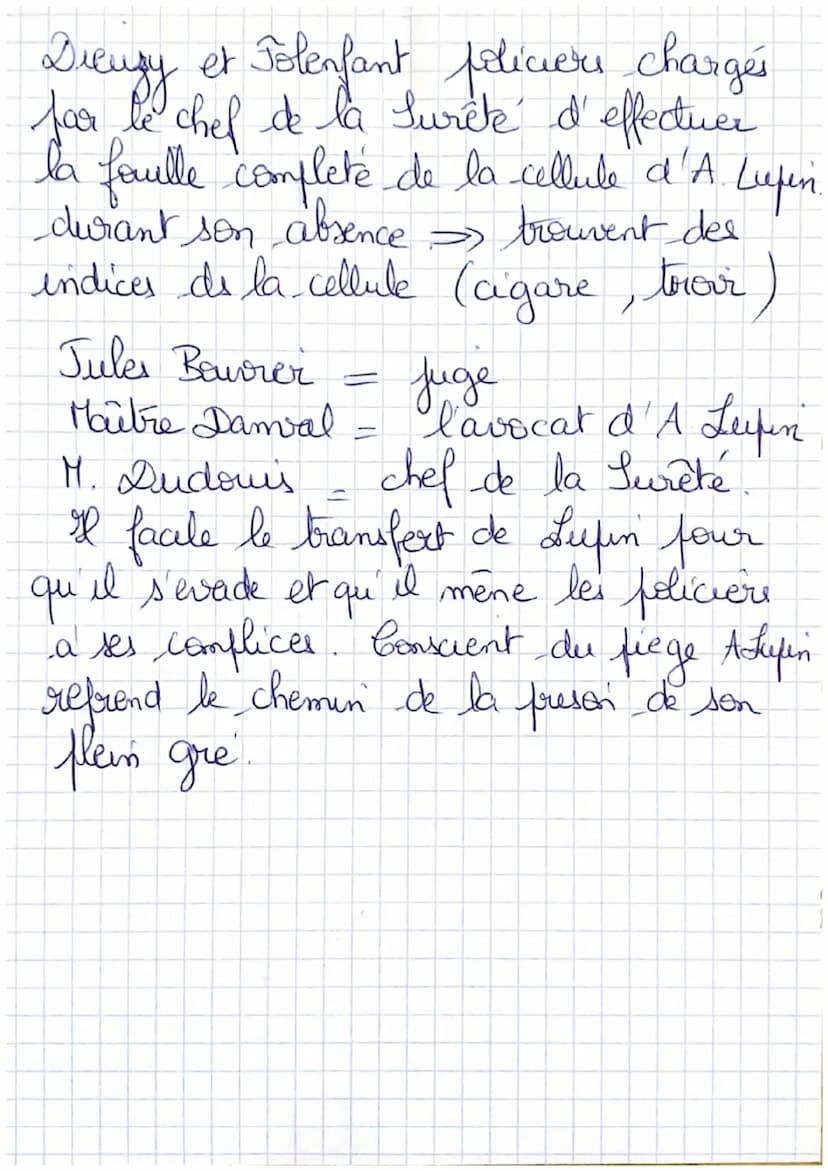 Dieuzy et Folenfant policiers chargés
par le chef de la Surêté d'effectuer
la fouille compléte de la cellule d'A. Lupin
durant son absence => trouvent des
indices ds la cellule (cigare, tiroir)
Jules Bouvier = juge
Maître Danval = l'avocat d'A Lupin
M. Dudouis = chef de la Surêté.
Il facile le transfert de Lupin pour
qu'il s'evade et qu'il mène les policiers
à ses complices. Conscient du piege A Lupin
reprend le chemin de la prison de son
plein gré.